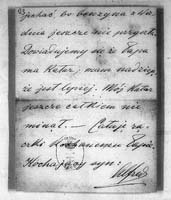 jechać bo benzyna z Wie-
dnia jeszcze nie przysz
Dowiadujemy się że Papa
ma Katar, mam nadzieję
że jest lepiej. Mój Katar
jeszcze całkiem nie
minął. — Całuję rą
czki kochanemu Papie
Kochający syn:
Alfred